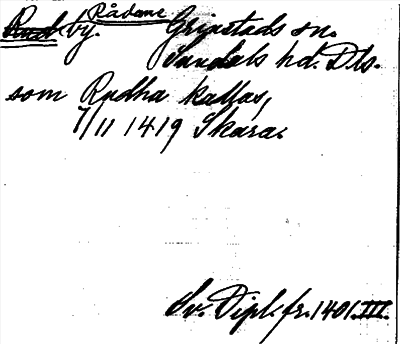 Rud by. Rådane Grinstads sn.
Sundals hd. Dls.
som Rudha kallas,
7/11 1419 Skara.
Sv. Dipl. fr. 1401. III.